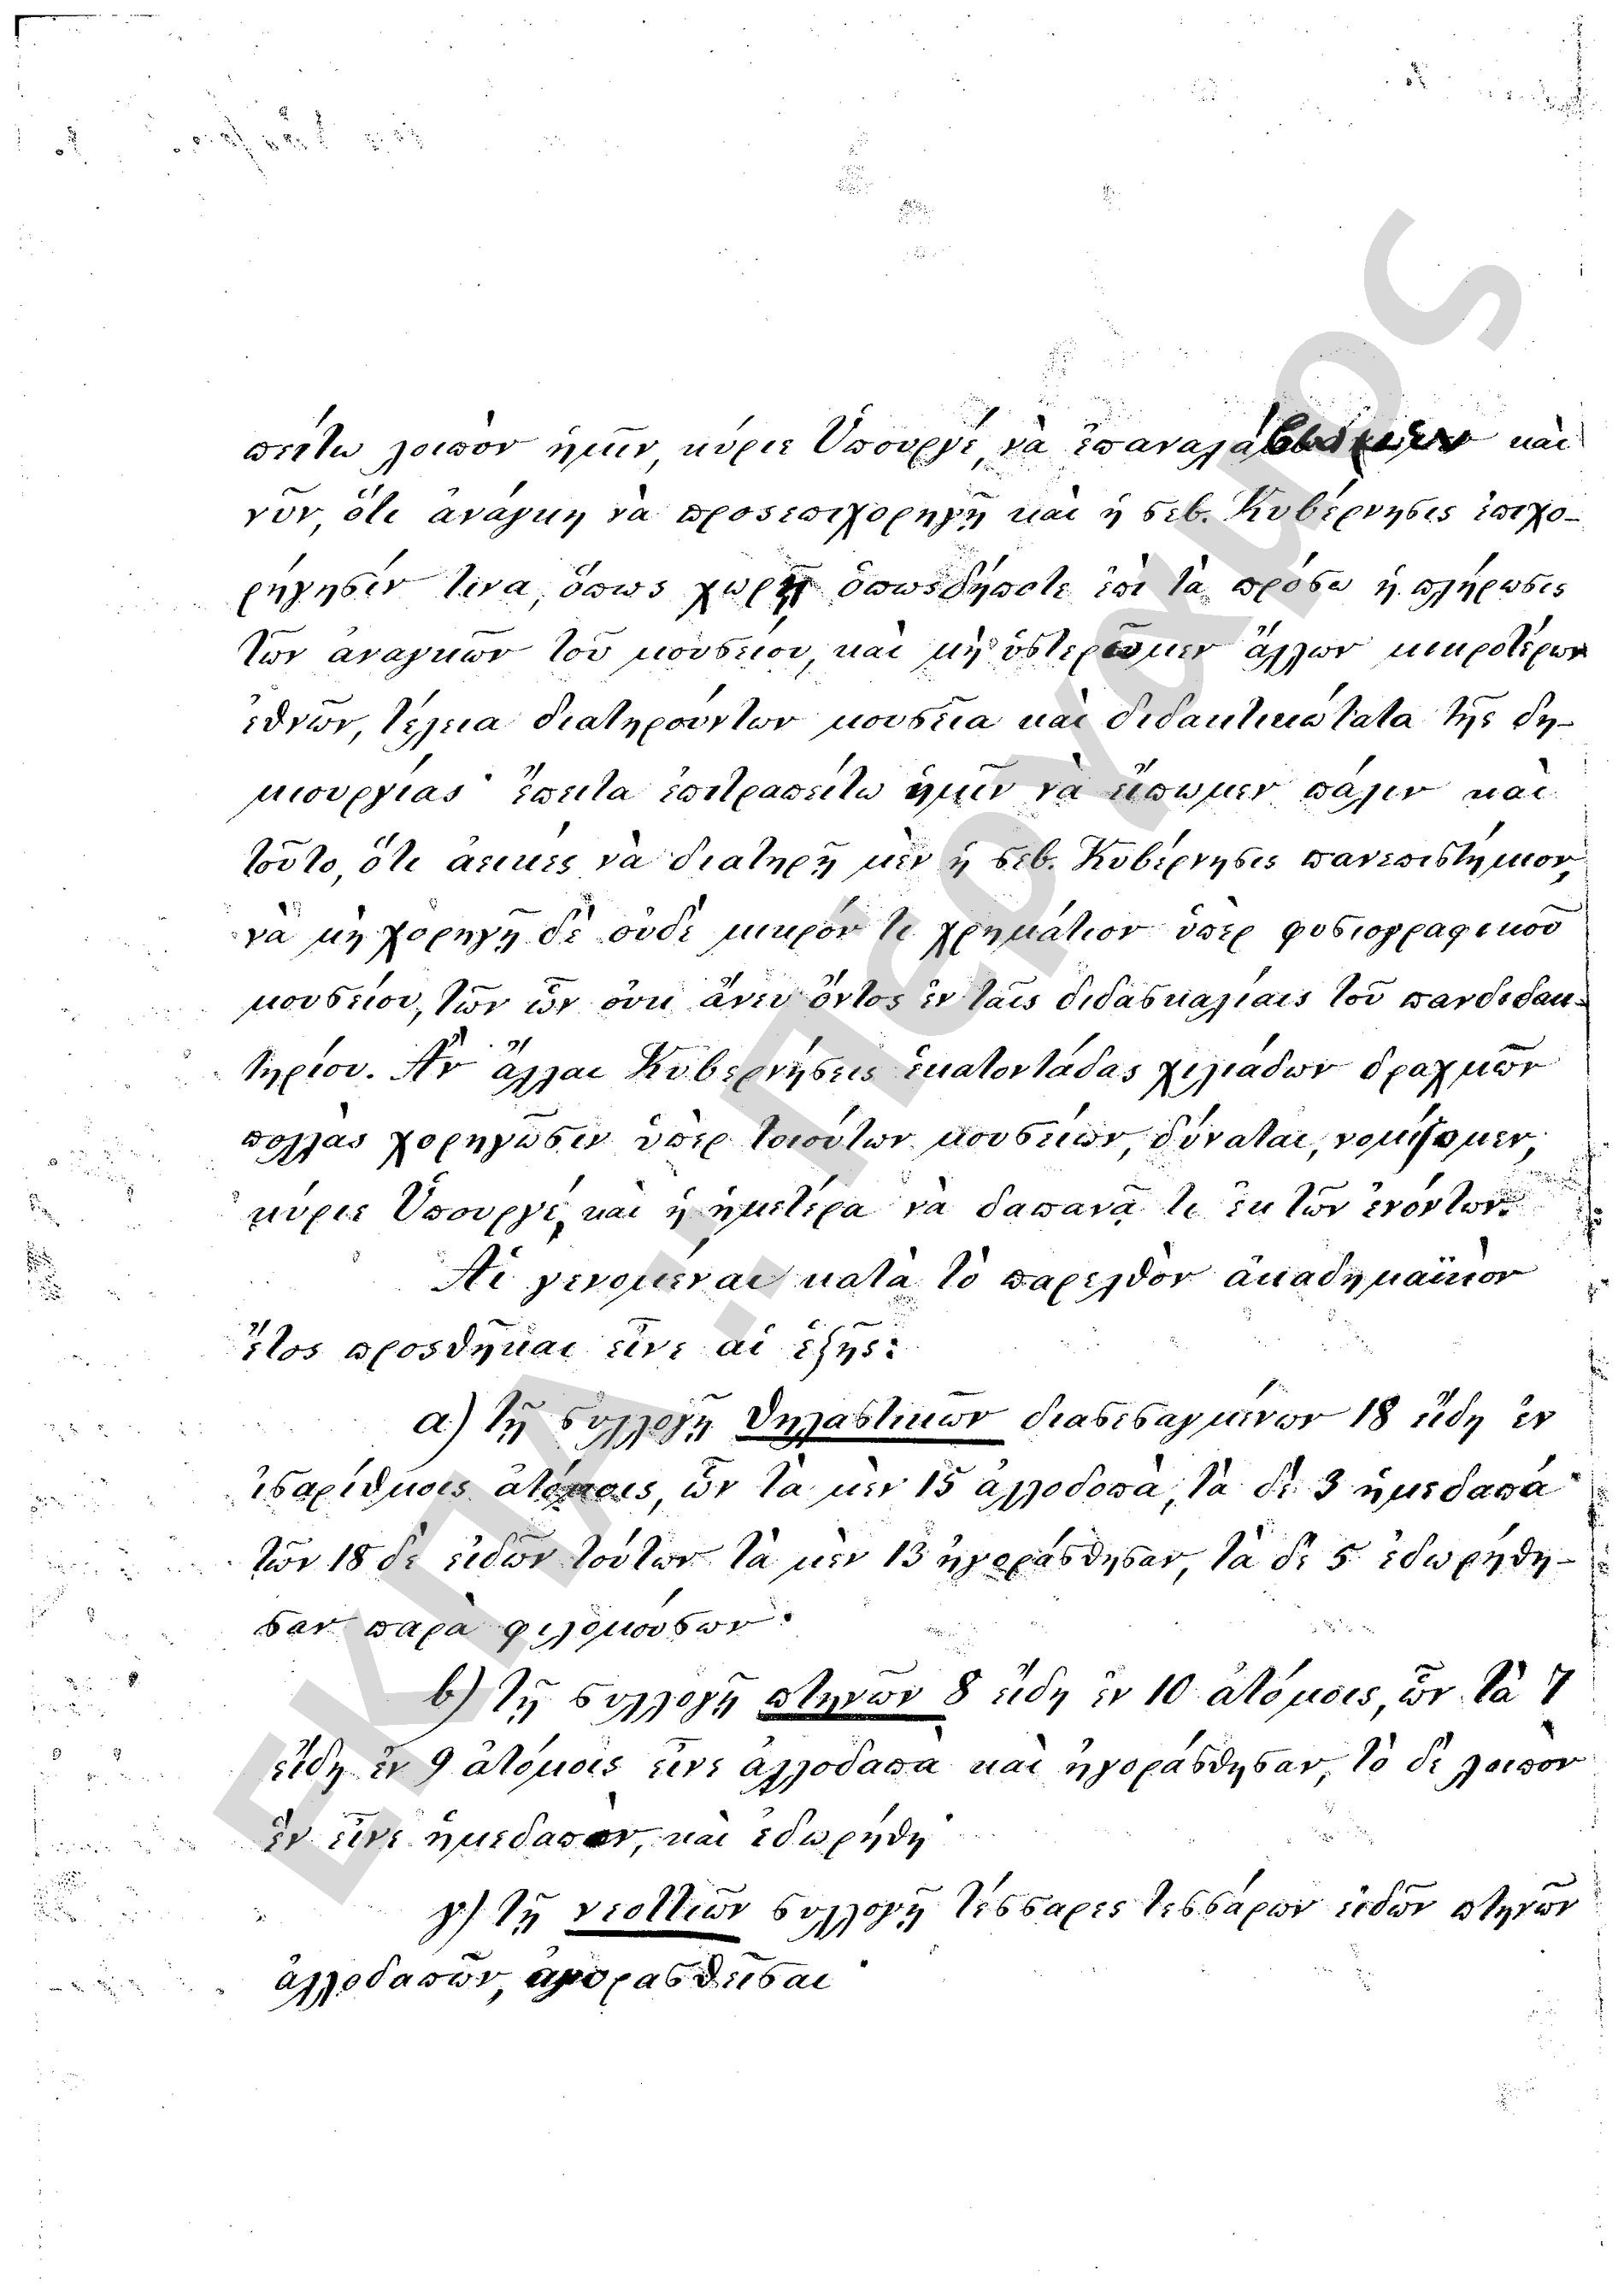 πείτω λοιπὸν ἡμῖν, κύριε Ὑπουργέ, νὰ ἐπαναλάβωμεν καὶ
νῦν, ὅτι ἀνάγκη νὰ προσεπιχορηγῇ καὶ ἡ σεβ. Κυβέρνησις ἐπιχο-
ρήγησίν τινα, ὅπως χωρῇ ὁπωςδήποτε ἐπὶ τὰ πρόσω ἡ πλήρωσις
τῶν ἀναγκῶν τοῦ μουσείου, καὶ μὴ ὑστερῶμεν ἄλλων μικροτέρων
ἐθνῶν, τέλεια διατηρούντων μουσεῖα καὶ διδακτικώτατα τῆς δη-
μιουργίας· ἔπειτα ἐπιτραπείτω ἡμῖν νὰ εἴπωμεν πάλιν καὶ
τοῦτο, ὅτι ἀεικὲς νὰ διατηρῇ μὲν ἡ σεβ. Κυβέρνησις πανεπιστήμιον,
νὰ μὴ χορηγῇ δὲ οὐδὲ μικρόν τι χρημάτιον ὑπὲρ φυσιογραφικοῦ
μουσείου, τῶν ὧν οὐκ ἄνευ ὄντος ἐν ταῖς διδασκαλίαις τοῦ πανδιδακ-
τηρίου. Ἂν ἄλλαι Κυβερνήσεις ἑκατοντάδας χιλιάδων δραχμῶν
πολλὰς χορηγῶσιν ὑπὲρ τοιούτων μουσείων, δύναται, νομίζομεν,
κύριε Ὑπουργέ, καὶ ἡ ἡμετέρα νὰ δαπανᾷ τι ἐκ τῶν ἐνόντων.
Αἱ γενόμεναι κατὰ τὸ παρελθὸν ἀκαδημαϊκὸν
ἔτος προσθῆκαι εἶνε αἱ ἑξῆς:
α) τῇ συλλογῇ θηλαστικῶν διασεσαγμένων 18 εἴδη ἐν
ἰσαρίθμοις ἀτόμοις, ὧν τὰ μὲν 15 ἀλλοδαπὰ, τὰ δὲ 3 ἡμεδαπά·
τῶν 18 δὲ εἰδῶν τούτων τὰ μὲν 13 ἠγοράσθησαν, τὰ δὲ 5 ἐδωρήθη-
σαν παρὰ φιλομούσων·
β) τῇ συλλογῇ πτηνῶν 8 εἴδη ἐν 10 ἀτόμοις, ὧν τὰ 7
εἴδη ἐν 9 ἀτόμοις εἶνε ἀλλοδαπὰ καὶ ἠγοράσθησαν, τὸ δὲ λοιπὸν
ἓν εἶνε ἡμεδαπὸν, καὶ ἐδωρήθη·
γ) τῇ νεοττιῶν συλλογῇ τέσσαρες τεσσάρων εἰδῶν πτηνῶν
ἀλλοδαπῶν, ἀγορασθεῖσαι·
ΕΚΠΑ - Πέργαμος